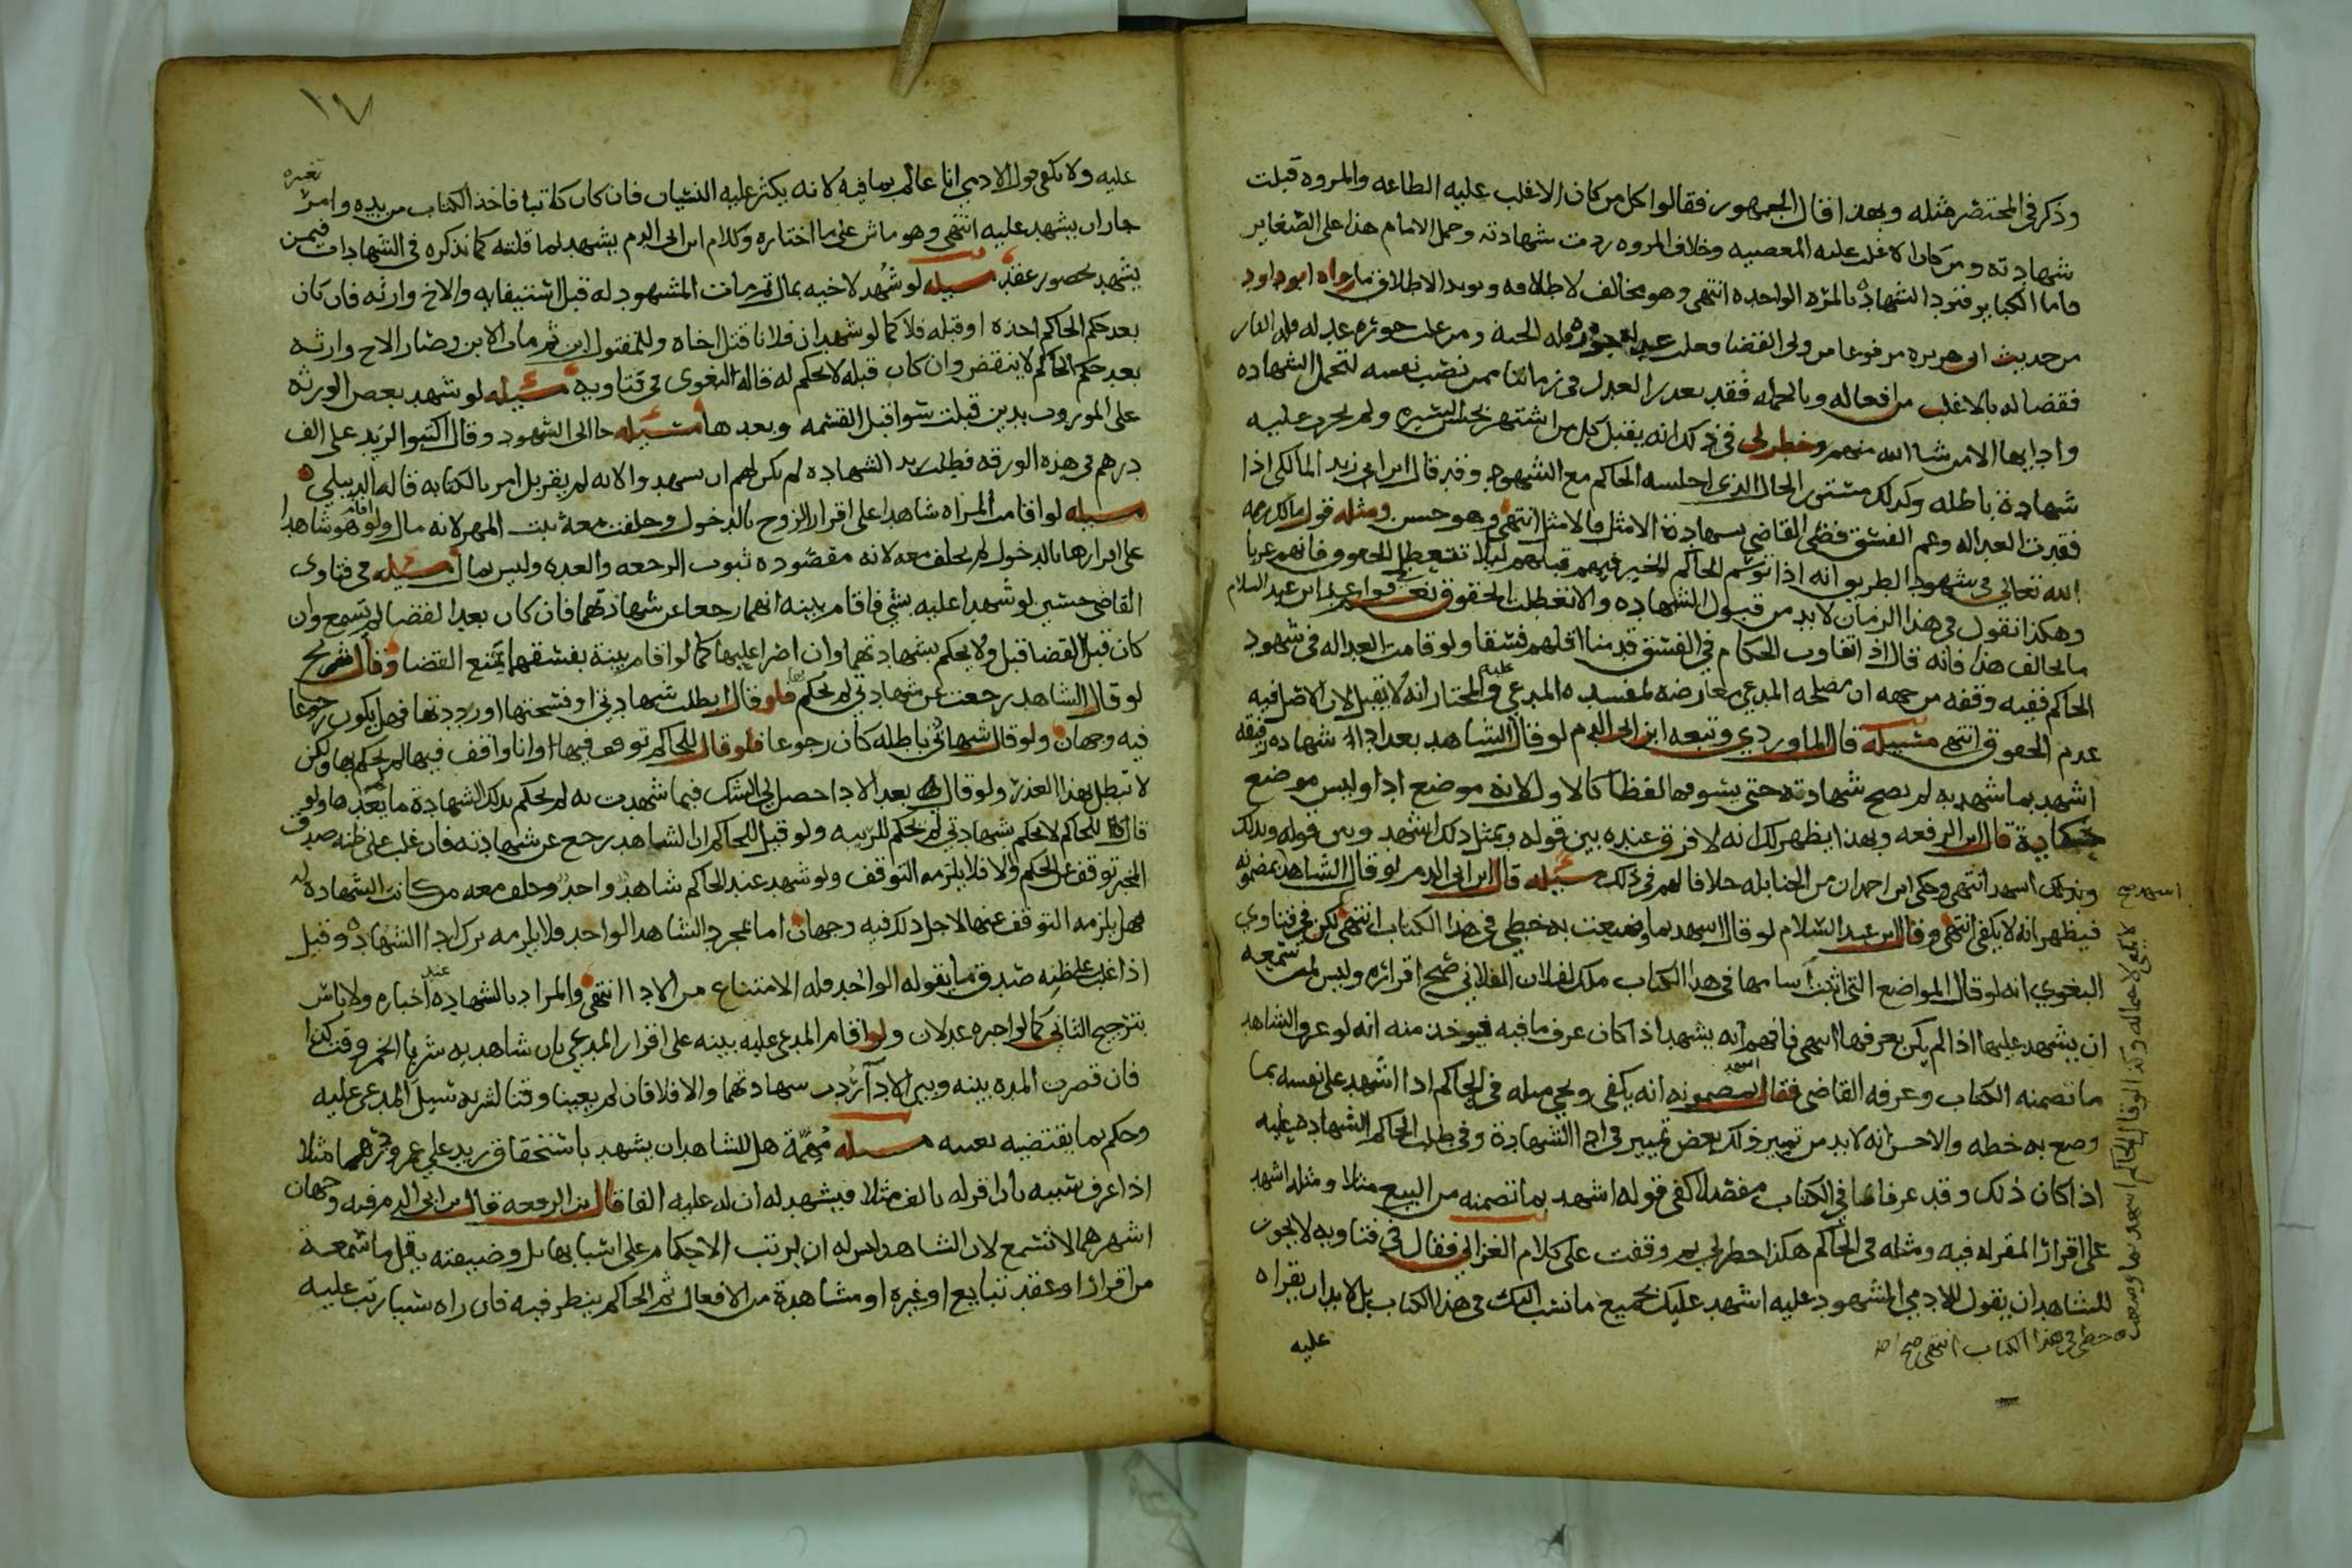 وذكر في المختصر مثله وبهذا قال الجمهور فقالوا كل من كان الاغلب عليه الطاعه والمروه قبلت
شهادته ومن كان الاغلب عليه المعصيه وخلاف المروه ردت شهادته وحمل الامام هذا على الصغاير
فاما الكباير فترد الشهادة بالمره الواحده انتهى وهو مخالف لاطلاقه ويويد الاطلاق ما رواه ابو داود
من حديث ابي هريره مرفوعا من ولي القضا فغلب عدله جوره فله الجنه ومن غلب جوره عدله فله النار
فقضا له بالاغلب من افعاله وبالجمله فقد تعذر العدل في زماننا ممن نصب نفسه لتحمل الشهاده
وادايها الا من شا الله منهم وخطر لي في ذلك انه يقبل كل من اشتهر بحسن السيره ولم يجرب عليه
شهادة باطله وكذلك مستور الحال الذي اجلسه الحاكم مع الشهود وقد قال ابن ابي زيد المالكي اذا
فقدت العداله وعم الفسق قضى القاضي بشهادة الامثل فالامثل انتهى وهو حسن ومثله قول مالك رحمه
الله تعالى في شهود الطريق انه اذا توسم الحاكم الخير فيهم قبلهم ليلا تتعطل الحقوق فانهم غربا
وهكذا نقول في هذا الزمان لا بد من قبول الشهاده والا تعطلت الحقوق نعم في قواعد ابن عبد السلام
ما يخالف هذا فانه قال اذا تفاوت الحكام في الفسق قدمنا اقلهم فسقا ولو فاتت العداله في شهود
الحاكم ففيه وقفه من جهه ان مصلحه المدعي معارضه لمفسده المدعى عليه والمختار انه لا تقبل لان الاصل فيه
عدم الحقوق انتهى مسيله قال الماوردي وتبعه ابن ابي الدم لو قال الشاهد بعد ادا شهاده رفيقه
اشهد بما شهد به لم تصح شهادته حتى يستوفيها لفظا كالاول لانه موضع ادا وليس موضع
حكاية قال ابن الرفعه وبهذا يظهر لك انه لا فرق عنده بين قوله وبمثل ذلك اشهد وبين قوله وبذلك
وبذلك اشهد انتهى وحكى ابن احمدان من الحنابله خلافا لهم في ذلك مسيله قال ابن ابي الدم لو قال الشاهد بمضمونه
فيظهر انه لا يكفي انتهى وقال ابن عبد السلام لو قال اشهد بما وضعت به خطي في هذا الكتاب انتهى لكن في فتاوى
البغوي انه لو قال المواضع التي اثبت اساميها في هذا الكتاب ملك لفلان الفلاني صح اقراره وليس لمن سمعه
ان يشهد عليها اذا لم يكن يعرفها انتهى فافهم انه يشهد اذا كان عرف ما فيه فيوخذ منه انه لو عرف الشاهد
ما تضمنه الكتاب وعرفه القاضي فقال اشهد بمضمونه انه يكفي ويجي مثله في الحاكم اذا اشهد على نفسه بما
وضع به خطه والاحسن انه لا بد من تمييز ذلك بعض تمييز في ادا الشهادة وفي طلب الحاكم الشهادة عليه
اذا كان ذلك وقد عرفاها في الكتاب مفصلا كفى قوله اشهد بما تضمنه من البيع مثلا ومثله اشهد
على اقرار المقر له فيه ومثله في الحاكم هكذا خطر لي ثم وقفت على كلام الغزالي فقال في فتاويه لا يجوز
للشاهد ان يقول للادمي المشهود عليه اشهد عليك بجميع ما نسب اليك في هذا الكتاب بل لا بد ان يقراه
عليه
اشهد صح
لا يكفي لاجماله وكذا لو قال للحاكم اشهد بما وضعت
به خطي في هذا الكتاب انتهى صح اصل
١٧
عليه ولا يكفي قول الادمي انا عالم بما فيه لانه يكثر عليه النسيان فان كان كاتبا فاخذ الكتاب من يده وامن تغيره
جاز ان يشهد عليه انتهى وهو ماش على ما اختاره وكلام ابن ابي الدم يشهد لما قلته كما نذكره في الشهادات فيمن
يشهد بحضور عقد مسيله لو شهد لاخيه بمال ثم مات المشهود له قبل استيفايه والاخ وارثه فان كان
بعد حكم الحاكم اخذه او قبله فلا كما لو شهد ان فلانا قتل اخاه وللمقتول ابن ثم مات الابن وصار الاخ وارثه
بعد حكم الحاكم لا ينقض وان كان قبله لا يحكم له قاله البغوي في فتاويه مسيله لو شهد بعض الورثه
على الموروث بدين قبلت سوا قبل القسمه وبعدها مسيله جا الى الشهود وقال اكتبوا لزيد علي الف
درهم في هذه الورقه فطلب زيد الشهاده لم يكن لهم ان يشهدوا لانه لم يقر بل امر بالكتابه قاله الدبيلي
مسيله لو اقامت المراه شاهدا على اقرار الزوج بالدخول وحلفت معه ثبت المهر لانه مال ولو اقام هو شاهدا
على اقرارها بالدخول لم يحلف معه لانه مقصوده ثبوت الرجعه والعده وليس بمال مسيله في فتاوى
القاضي حسين لو شهدا عليه بشي فاقام بينه انهما رجعا عن شهادتهما فان كان بعد القضا لم تسمع وان
كان قبل القضا قبل ولا يحكم بشهادتهما وان اصرا عليها كما لو اقام بينة بفسقهما يمتنع القضا وقال شريح
لو قال الشاهد رجعت عن شهادتي لم يحكم بها فلو قال ابطلت شهادتي او فسختها او رددتها فهل يكون رجوعا
فيه وجهان ولو قال شهادتي باطله كان رجوعا فلو قال للحاكم توقف فيها او انا واقف فيها لم يحكم بها ولكن
لا تبطل بهذا العذر ولو قال بعد الادا حصل لي الشك فيما شهدت به لم يحكم بتلك الشهادة ما لم يعدها ولو
قال للحاكم لا تحكم بشهادتي لم يحكم للريبه ولو قيل للحاكم ان الشاهد رجع عن شهادته فان غلب على ظنه صدق
المخبر توقف عن الحكم والا فلا يلزمه التوقف ولو شهد عند الحاكم شاهد واحد وحلف معه من كانت الشهادة له
فهل يلزمه التوقف عنها لاجل ذلك فيه وجهان اما بمجرد الشاهد الواحد فلا يلزمه ترك ادا الشهادة وقيل
اذا غلب على ظنه صدق ما يقوله الواحد فله الامتناع من الادا انتهى والمراد بالشهادة عند اخباره ولا باس
بترجيح الثاني كما لو اخبره عدلان ولو اقام المدعى عليه بينه على اقرار المدعي بان شاهديه شربا الخمر وقت كذا
فان قصرت المده بينه وبين الادا ردت شهادتهما والا فلا فان لم يعينا وقتا لشربه سيل المدعى عليه
وحكم بما يقتضيه تعيينه مسيله مهمة هل للشاهد ان يشهد باستحقاق زيد على عمرو درهما مثلا
اذا عرف سببه بان اقر له بالف مثلا فيشهد له ان له عليه الفا قال ابن الرفعه قال ابن ابي الدم فيه وجهان
اشهرهما لا تسمع لان الشاهد ليس له ان يرتب الاحكام على اسبابها بل وضيفته ينقل ما سمعه
من اقرار او عقد تبايع او غيره او مشاهدة من الافعال ثم الحاكم ينظر فيه فان راه سببا رتب عليه